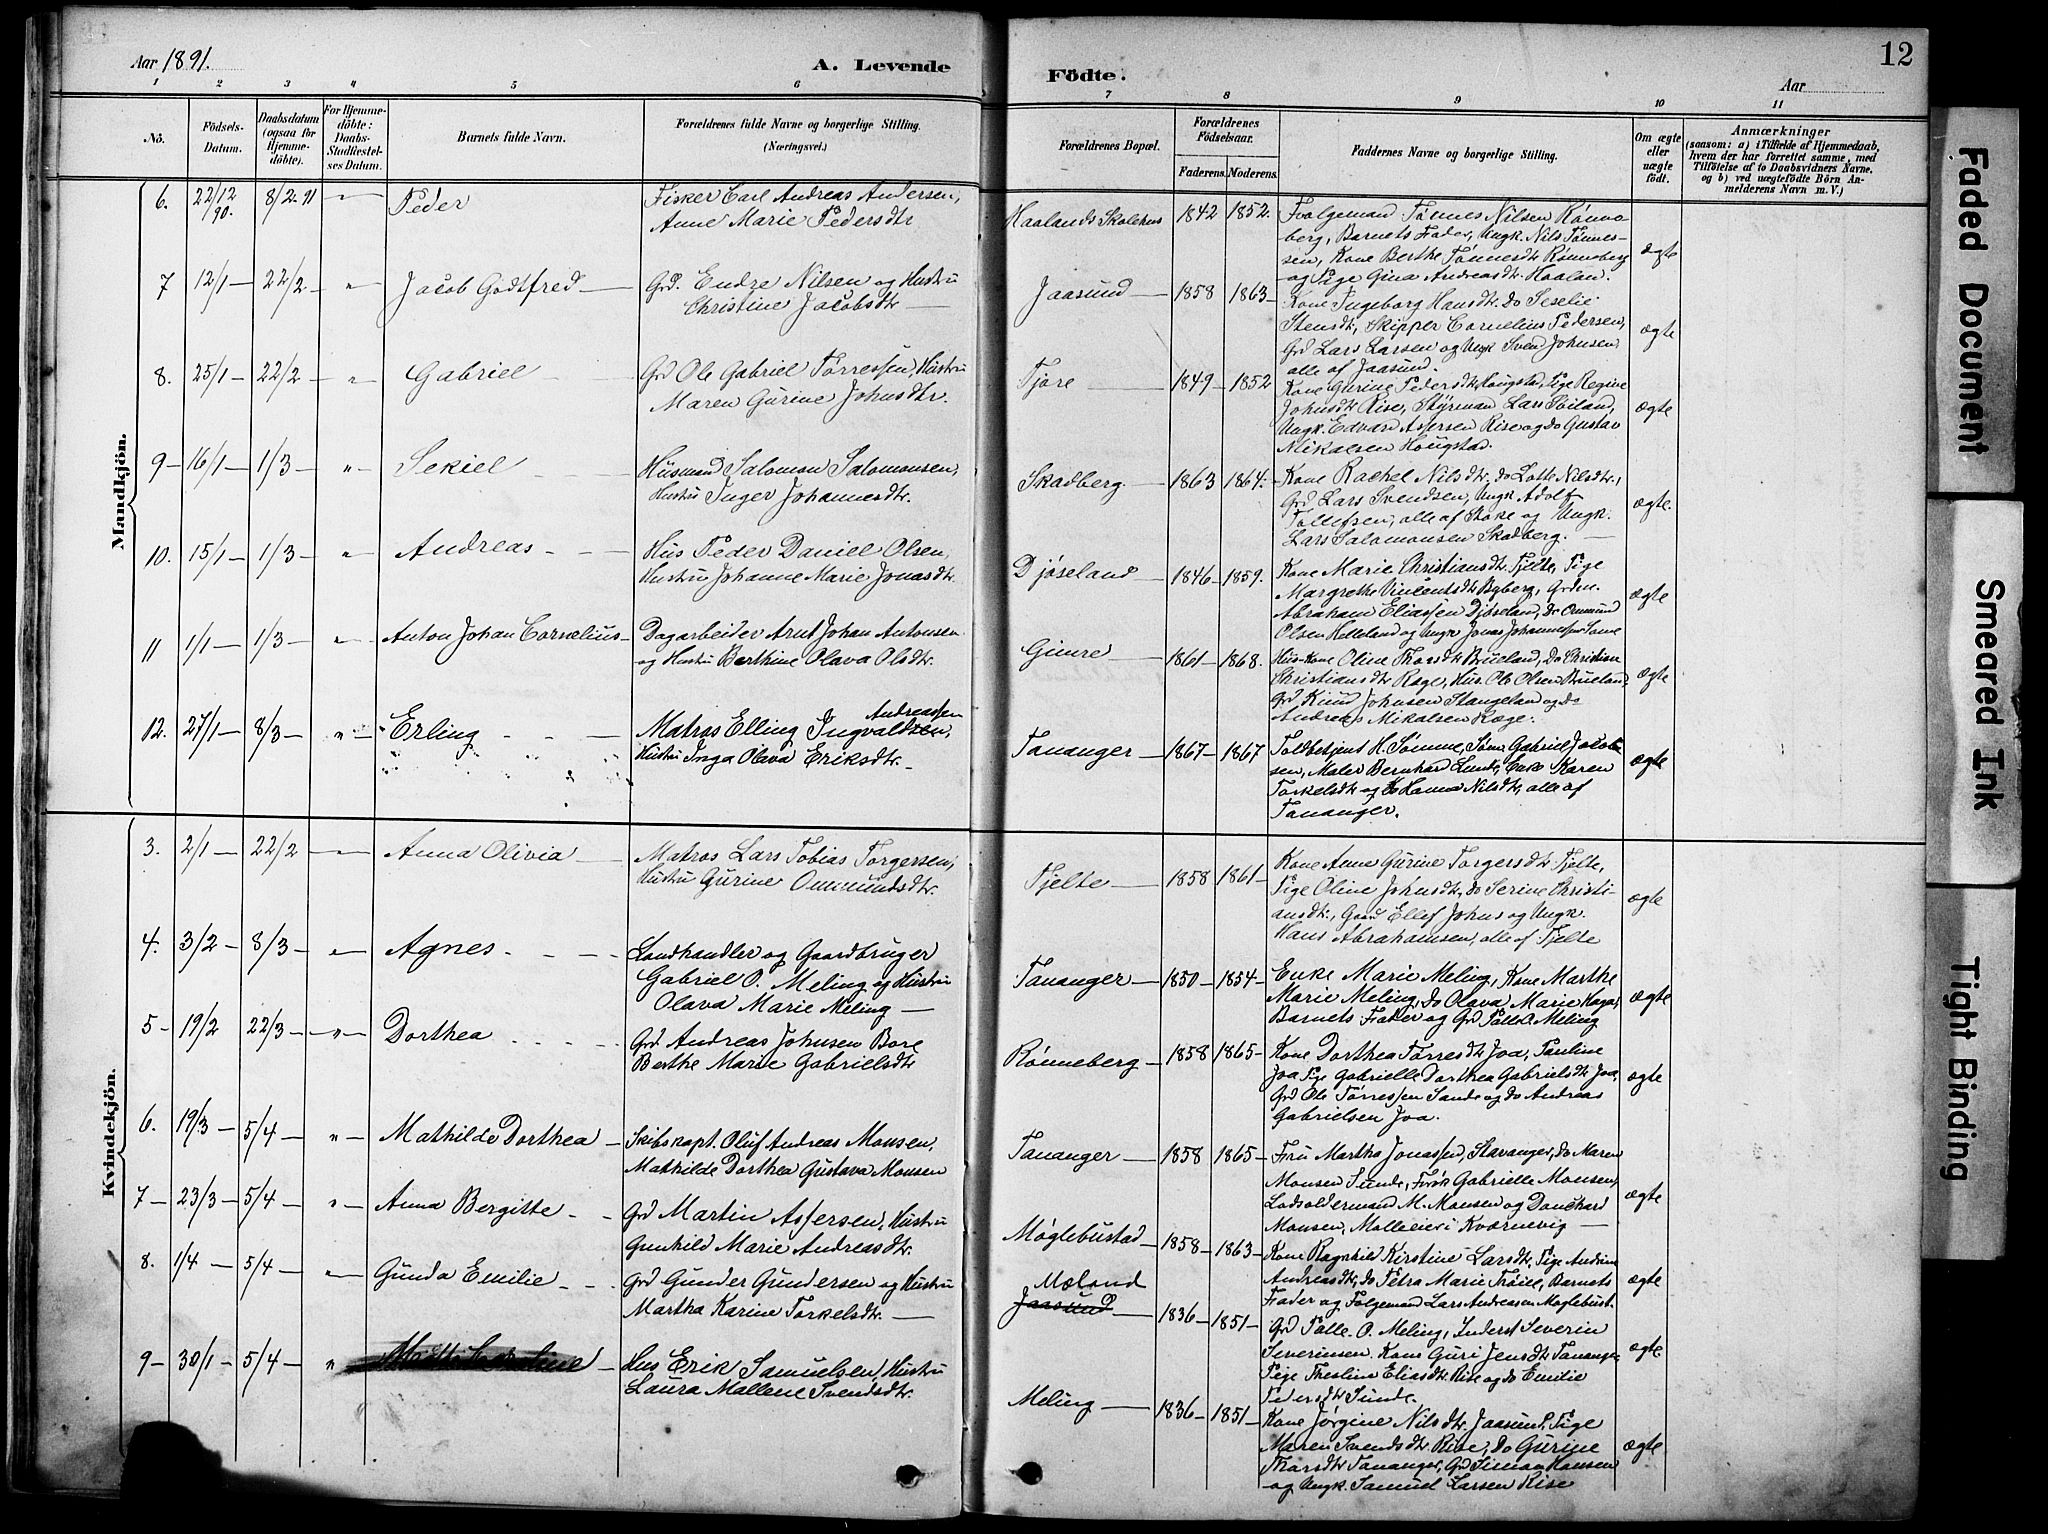 Aar 1891.
A. Levende
Födte.
Aar
12
1 2 3 4 5 6 7 8 9 10 11
No.
Födsels-Datum.
Daabsdatum (ogsaa for Hjemmedöbte).
For Hjemmedöbte: Daabs-Stadfæstelses Datum.
Barnets fulde Navn.
Forældrenes fulde Navne og borgerlige Stilling.
(Næringsvei.)
Forældrenes Bopæl.
Forældrenes Födselsaar.
Faderens. Moderens.
Faddernes Navne og borgerlige Stilling.
Om ægte eller uægte födt.
Anmærkninger
(saasom: a) i Tilfælde af Hjemmedaab,
hvem der har forrettet samme, med
Tilföielse af to Daabsvidners Navne,
og b) ved uægtefödte Börn Anmelderens Navn m. V.)
Mandkjön.
6. 22/12 90. 8/2-91 Peder
Fisker Carl Andreas Andersen,
Anne Marie Pedersdtr
Haalands Skolehus 1842 1852.
Tønnes Nilsen Rønneberg, Barnets Fader, Ungk. Nils Tønnessen, Kone Berthe Tønnesdt Rønneberg
og Pige Gina Andreasdt. Haaland.
ægte
7 12/1 22/2. Jacob Godtfred
Grd. Endre Nilsen og Hustru
Christine Jacobsdtr
Jaasund 1858 1863
Kone Ingeborg Hansdtr. do Seselie
Stensdt, Skipper Cornelius Pedersen,
Grd Lars Larsen og Ungk Svend Johnsen
alle af Jaasund.
ægte
8. 25/1 22/2 Gabriel
Grd Ole Gabriel Tørressen, Hustru
Maren Gurine Johnsdtr.
Tjore 1849 1852
Kone Gurine Pedersdt, Hougstad, Pige Regine
Johnsdt Rise, Styrmand Lars Søiland,
Ungk. Edvard Assersen Rise og do Gustav
Mikalsen Hougstad.
ægte
9 16/1 1/3 Sekiel
Husmand Salomon Salomonsen,
Hustru Inger Johannesdtr.
Skadberg. 1863 1864.
Kone Rachel Nilsdt, do Lotte Nilsdt,
Grd Lars Svendsen, Ungk Adolf
Tollefsen, alle af Stoke og Ungk.
Lars Salomonsen Skadberg.
ægte.
10. 15/1 1/3 Andreas
Hus Peder Daniel Olsen,
Hustru Johanne Marie Jonasdtr.
Djøseland 1846 1859.
Kone Marie Christiansdt. Tjelte, Pige
Margrethe Vincentsdt Bybberg, Grden.
Abraham Eliassen Djøseland, do Ommund
Olsen Helleland og Ungk Jonas Johannessen
ægte
11 1/1 1/3 Anton Johan Cornelius
Dagarbeider Arnt Johan Antonsen
og Hustru Berthine Olava Olsdtr.
Gimre 1861 1868.
Hus-Kone Oline Thorsdt Brueland, do Christine
Christiansdt Ræge, Hus. Ole Olsen Brueland,
Grd Knud Johnsen Stangeland og do
Andreas Mikalsen Ræge.
ægte
12. 27/1 8/3 Erling
Andreassen
Matros Elling Ingvaldsen,
Hustru Inga Olava Eriksdtr.
Tananger 1867 1867
Toldbetjent H. Sømme, Gabriel Jacobsen, Maler Bernhard Lunde, Enke Karen
Torkelsdt og do Hanna Nilsdt, alle af
Tananger.
ægte
Kvindekjön.
3. 2/1 22/2 Anna Olivia
Matros Lars Tobias Torgersen,
Hustru Gurine Ommundsdtr.
Tjelte 1858 1861
Kone Anne Gurine Torgersdt. Tjelte,
Pige Oline Johnsdt, do Serine Christiansdt., Ellef Johns og Ungk.
Hans Abrahamsen, alle af Tjelte
ægte
4. 3/2 8/3 Agnes
Landhandler og Gaardbruger
Gabriel O. Meling og Hustru
Olava Marie Meling
Tananger 1850 1854
Enke Marie Meling, Kone Marthe
Marie Meling, do Olava Marie Haga,
Barnets Fader og Grd Tolle O. Meling
ægte
5 19/2 22/3 Dorthea
Grd Andreas Johnsen Bore
Berthe Marie Gabrielsdtr
Rønneberg 1858 1865
Kone Dorthea Tørresdt Joa, Pauline
Joa Pige Gabrielle Dorthea Gabrielsdt Joa,
Grd Ole Tørressen Sande og do Andreas
Gabrielsen Joa.
ægte
6. 19/3 5/4 Mathilde Dorthea
Skibskapt. Oluf Andreas Monsen,
Mathilde Dorthea Gustava Monsen
Tananger 1858 1865
Fru Martha Jonassen, Stavanger, do Maren
Monsen Sunde, Frøk Gabrielle Monsen,
Lodsoldermand M. Monsen og
Monsen, Mølleeier i Kværnevig
ægte
7 23/3 5/4 Anna Bergitte
Grd Martin Assersen, Hustru
Gunhild Marie Andreasdtr.
Møglebustad 1858 1863
Kone Ragnhild Kirstine Larsdt, Pige
Andreasdt, do Petra Marie Trøiel, Barnets
Fader og Følgemand Lars Andreasen Møglebust.
ægte
8. 1/4 5/4 Gunda Emilie
Grd Gunder Gundersen og Hustru
Martha Karine Torkelsdtr.
Mæland
Jaasund 1836 1851
Grd Tolle. O. Meling, Inderst Severin
Severinsen. Kone Guri Jensdt Tananger,
Pige Thesline Eliasdt Rise og do Emilie
Pedersdt Sunde.
ægte.
9 30/1 5/4
Hus Erik Samuelsen, Hustru
Laura Mallene Svendsdtr.
Meling 1836 1851
Kone Jørgine Nilsdtr. Jaasund, Pige
Maren Svendsdtr. Rise, do Gurine
Thorsdt Tananger, Grd Simon Hansen
og Ungk. Samuel Larsen Rise
ægte
Faded Document
Smeared Ink
Tight Binding